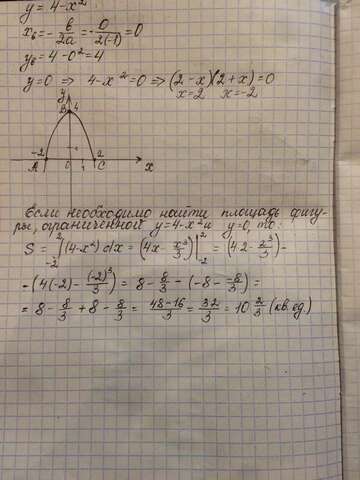 y = 4-x²
x₆ = -в/2a = -0/2(-1) = 0
y₆ = 4-0² = 4
y=0 => 4-x²=0 => (2-x)(2+x)=0
x=2 x=-2
y
B 4
-2 2
A 0 1 C x
Если необходимо найти площадь фигу-
ры, ограниченной y=4-x² и y=0, то:
S = ∫₋₂² (4-x²)dx = (4x - x³/3)|₋₂² = (4·2 - 2³/3) -
- (4(-2) - (-2)³/3) = 8 - 8/3 - (-8 - -8/3) =
= 8 - 8/3 + 8 - 8/3 = 48-16/3 = 32/3 = 10 2/3 (кв. ед.)